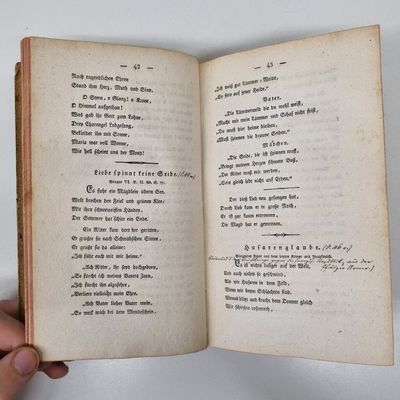 — 42 —
Nach tugendlichen Ehren
Stand ihm Herz, Muth und Sinn.
O Stern, o Glanz! o Krone,
O Himmel aufgethan!
Was gab ihr Gott zum Lohne,
Der Lobgesang,
Bekleidet ihn mit Sonne,
Maria war voll Wonne,
Wie hell scheint uns der Mond!
Liebe spinnt keine Seide.
Es fuhr ein Mägdlein übern See,
Wollt brechen den Feiel und grünen Klee,
Mit ihren schneeweißen Händen,
Der Sommer hat schier ein Ende.
Ein Ritter kam dort her geritten,
Er grüßte sie nach Schwäbischen Sitten,
Er grüßt sie da alleine:
„Ich führe euch mit mir heime.“
„Ach Ritter, ihr seyd hochgeborn,
„So fürcht ich meines Vaters Zorn,
„Ich fürcht ihn
„Verliere vielleicht mein Ehre.
„Ach Vater lieber Vater mein,
„So weck mich bei dem Mondenschein,
— 43 —
„Ich weiß gut Lämmer-Weide,
„Es fern auf jener Heide.“
Vater.
„Die Lämmerweid die du wohl weißt,
„Macht mir mein Lämmer und Schaf nicht feist,
„Du must hier heime bleiben,
„Must spinnen die braune Seiden.“
Mädchen.
„Die Seide, die ich spinnen muß,
„Bringt meinem Herzen schwere Buß,
„Der Ritter muß mir werden,
„Sein gleich lebt nicht auf Erden.“
Der uns das Liedlein hat,
Durch Lieb kam er in große Noth,
Er ist gar kaum entronnen,
Die Magd hat er gewonnen.
Husarenglaube.
Es ist nichts lustger auf der Welt,
Und auch nichts so geschwind,
Als wir Husaren in dem Feld,
Wenn wir beym Schlachten sind.
Wenns blitzt und kracht dem Donner gleich
Wir schießen rosenroth,